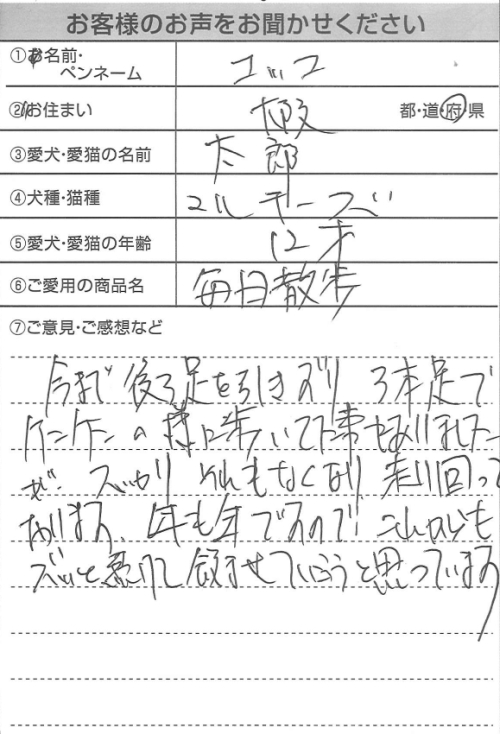 お客様のお声をお聞かせください
①お名前・ペンネーム コッコ
②お住まい 大阪 都・道・府・県
③愛犬・愛猫の名前 太郎
④犬種・猫種 マルチーズ
⑤愛犬・愛猫の年齢 12才
⑥ご愛用の商品名 毎日散歩
⑦ご意見・ご感想など
今まで後ろ足を引きずり 3本足で
ケンケンの様に歩いてた事もありました
が、ズッカリ それもなくなり 走り回って
おります、年も年ですので これからも
ズッと続けて飲ませていこうと思っています